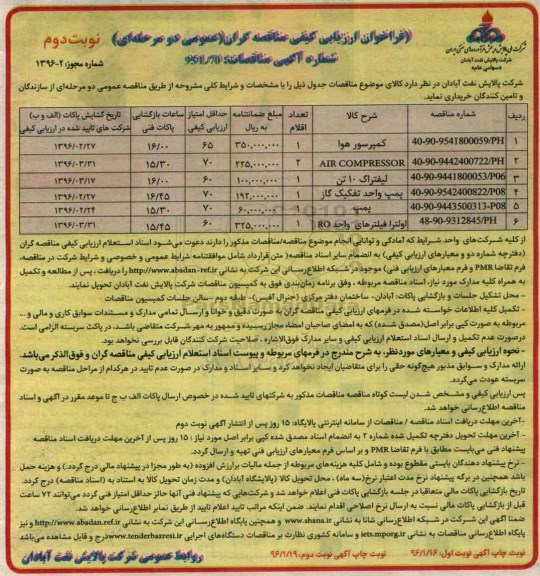 (فراخوان ارزیابی کیفی مناقصه گران(عمومی دو مرحله‌ای)
نوبت دوم
شماره آگهی مناقصات: 951/70
شماره مجوز: ۱۳۹۶-۲
شرکت پالایش نفت آبادان
«سهامی عام»
شرکت پالایش نفت آبادان در نظر دارد کالای موضوع مناقصات جدول ذیل را با مشخصات و شرایط کلی مشروحه از طریق مناقصه عمومی دو مرحله‌ای از سازندگان
و تامین کنندگان خریداری نماید.
ردیف شماره مناقصه شرح کالا تعداد اقلام مبلغ ضمانتنامه به ریال حداقل امتیاز ارزیابی کیفی ساعات بازگشایی پاکات فنی تاریخ گشایش پاکات (الف و ب) شرکت های تایید شده در ارزیابی کیفی
۱ 40-90-9541800059/PH کمپرسور هوا ۱ ۳۵۰,۰۰۰,۰۰۰ ۶۵ ۱۶/۰۰ ۱۳۹۶/۰۲/۲۷
۲ 40-90-9442400722/PH AIR COMPRESSOR ۲ ۲۲۵,۰۰۰,۰۰۰ ۷۰ ۱۵/۳۰ ۱۳۹۶/۰۳/۳۱
۳ 40-90-9441800053/P06 لیفتراگ ۱۰ تن ۱ ۱۰۰,۰۰۰,۰۰۰ ۶۰ ۱۶/۰۰ ۱۳۹۶/۰۳/۱۷
۴ 40-90-9542400822/P08 پمپ واحد تفکیک گاز ۱ ۱۹۲,۰۰۰,۰۰۰ ۷۰ ۱۶/۴۵ ۱۳۹۶/۰۲/۲۷
۵ 40-90-9443500313-P08 پمپ ۱ ۶۰,۰۰۰,۰۰۰ ۷۰ ۱۵/۳۰ ۱۳۹۶/۰۲/۲۴
۶ 48-90-9312845/PH اولترا فیلترهای واحد RO ۱ ۳۲۵,۰۰۰,۰۰۰ ۶۰ ۱۶/۴۵ ۱۳۹۶/۰۳/۳۱
از کلیه شرکت‌های واحد شرایط که آمادگی و توانایی انجام موضوع مناقصه/مناقصات مذکور را دارند دعوت می‌شود اسناد استعلام ارزیابی کیفی مناقصه گران
(دفترچه شماره دو و معیارهای کیفی) به انضمام سایر اسناد مناقصه( متن قرارداد شامل موافقتنامه شرایط عمومی و خصوصی و شرایط شرکت در مناقصه،
فرم تقاضا PMR و فرم معیارهای ارزیابی فنی) موجود در شبکه اطلاع‌رسانی این شرکت به نشانی http://www.abadan-ref.ir را دریافت، پس از مطالعه و تکمیل
به همراه کلیه مدارک مورد نیاز، اسناد مناقصه مربوطه ، وفق برنامه زمان‌بندی فوق به کمیسیون مناقصات شرکت پالایش نفت آبادان تحویل نمایند.
- محل تشکیل جلسات و بازگشایی پاکات: آبادان- ساختمان دفتر مرکزی (جنرال آفیس)- طبقه دوم -سالن جلسات کمیسیون مناقصات
- تکمیل کلیه اطلاعات خواسته شده در فرمهای ارزیابی کیفی مناقصه گران به صورت دقیق و خوانا و ارسال تمامی مدارک و مستندات سوابق کاری و مالی و ...
مربوطه به صورت کپی برابر اصل(مصدق شده) که به امضای صاحبان امضاء مجاز رسیده و ممهور به مهر شرکت متقاضی باشد، در پاکت سربسته الزامی است.
درصورت عدم تکمیل و ارسال اسناد استعلام ارزیابی کیفی و سایر مدارک فوق‌الاشاره ، صلاحیت شرکت کنندگان قابل بررسی نخواهد بود.
- نحوه ارزیابی کیفی و معیارهای موردنظر، به شرح مندرج در فرمهای مربوطه و پیوست اسناد استعلام ارزیابی کیفی مناقصه گران و فوق‌الذکر می‌باشد.
ارائه مدارک و سوابق مذبور هیچ‌گونه حقی را برای متقاضیان ایجاد نخواهد کرد و سایر اسناد و مدارک در صورت عدم تایید در هرکدام از مراحل مناقصه به صورت
سربسته عودت می‌گردد.
پس ارزیابی کیفی و مشخص شدن لیست کوتاه مناقصه مناقصات مذکور به شرکتهای تایید شده در خصوص ارسال پاکات الف ب ج تا موعد مقرر در آگهی و اسناد
مناقصه اطلاع‌رسانی خواهد شد.
-آخرین مهلت دریافت اسناد مناقصه / مناقصات از سامانه اینترنتی پالایگاه: ۱۵ روز پس از انتشار آگهی نوبت دوم
- آخرین مهلت تحویل دفترچه تکمیل شده شماره ۲ به انضمام اسناد مصدق شده کپی برابر اصل مورد نیاز : ۱۵ روز پس از آخرین مهلت دریافت اسناد مناقصه
پیشنهاد فنی می‌بایست مطابق با فرم تقاضا PMR و بر اساس فرم معیارهای ارزیابی فنی تهیه و ارسال گردد.
- نرخ پیشنهاد دهندگان بایستی مقطوع بوده و شامل کلیه هزینه‌های مربوطه از جمله مالیات برارزش افزوده (به طور مجزا در پیشنهاد مالی درج گردد.) و هزینه حمل
باشد همچنین در برگه پیشنهاد نرخ مدت اعتبار نرخ(سه ماه) ، محل تحویل کالا (پالایشگاه آبادان) و مدت زمان تحویل کالا به استناد به (اسناد مناقصه) درج گردد.
تاریخ بازگشایی پاکات مالی متعاقبا در جلسه بازگشایی پاکات فنی اعلام خواهد شد و شرکت‌هایی که پیشنهاد فنی آنها حائز حداقل امتیاز فنی گردد می‌توانند ۷۲ ساعت
قبل از بازگشایی پاکات مالی نسبت به ارسال نرخ اصلاحی اقدام نمایند. ضمن اینکه مراتب تایید اعلام تایید از طریق نمابر اطلاع‌رسانی خواهد شد.
ضمنا آگهی این شرکت در شبکه اطلاع‌رسانی شانا به نشانی www.shana.ir و همچنین پایگاه اطلاع‌رسانی این شرکت به نشانی http://www.abadan-ref.ir و نیز
پایگاه اطلاع‌رسانی مناقصات به نشانی iets.mporg.ir و سامانه کشوری نظارت بر مناقصات دستگاه‌های اجرایی www.tenderbazresi.ir درج و قابل مشاهده می‌باشد
نوبت چاپ آگهی نوبت اول: ۹۶/۱/۱۶ نوبت چاپ آگهی نوبت دوم: ۹۶/۱/۱۹ روابط عمومی شرکت پالایش نفت آبادان